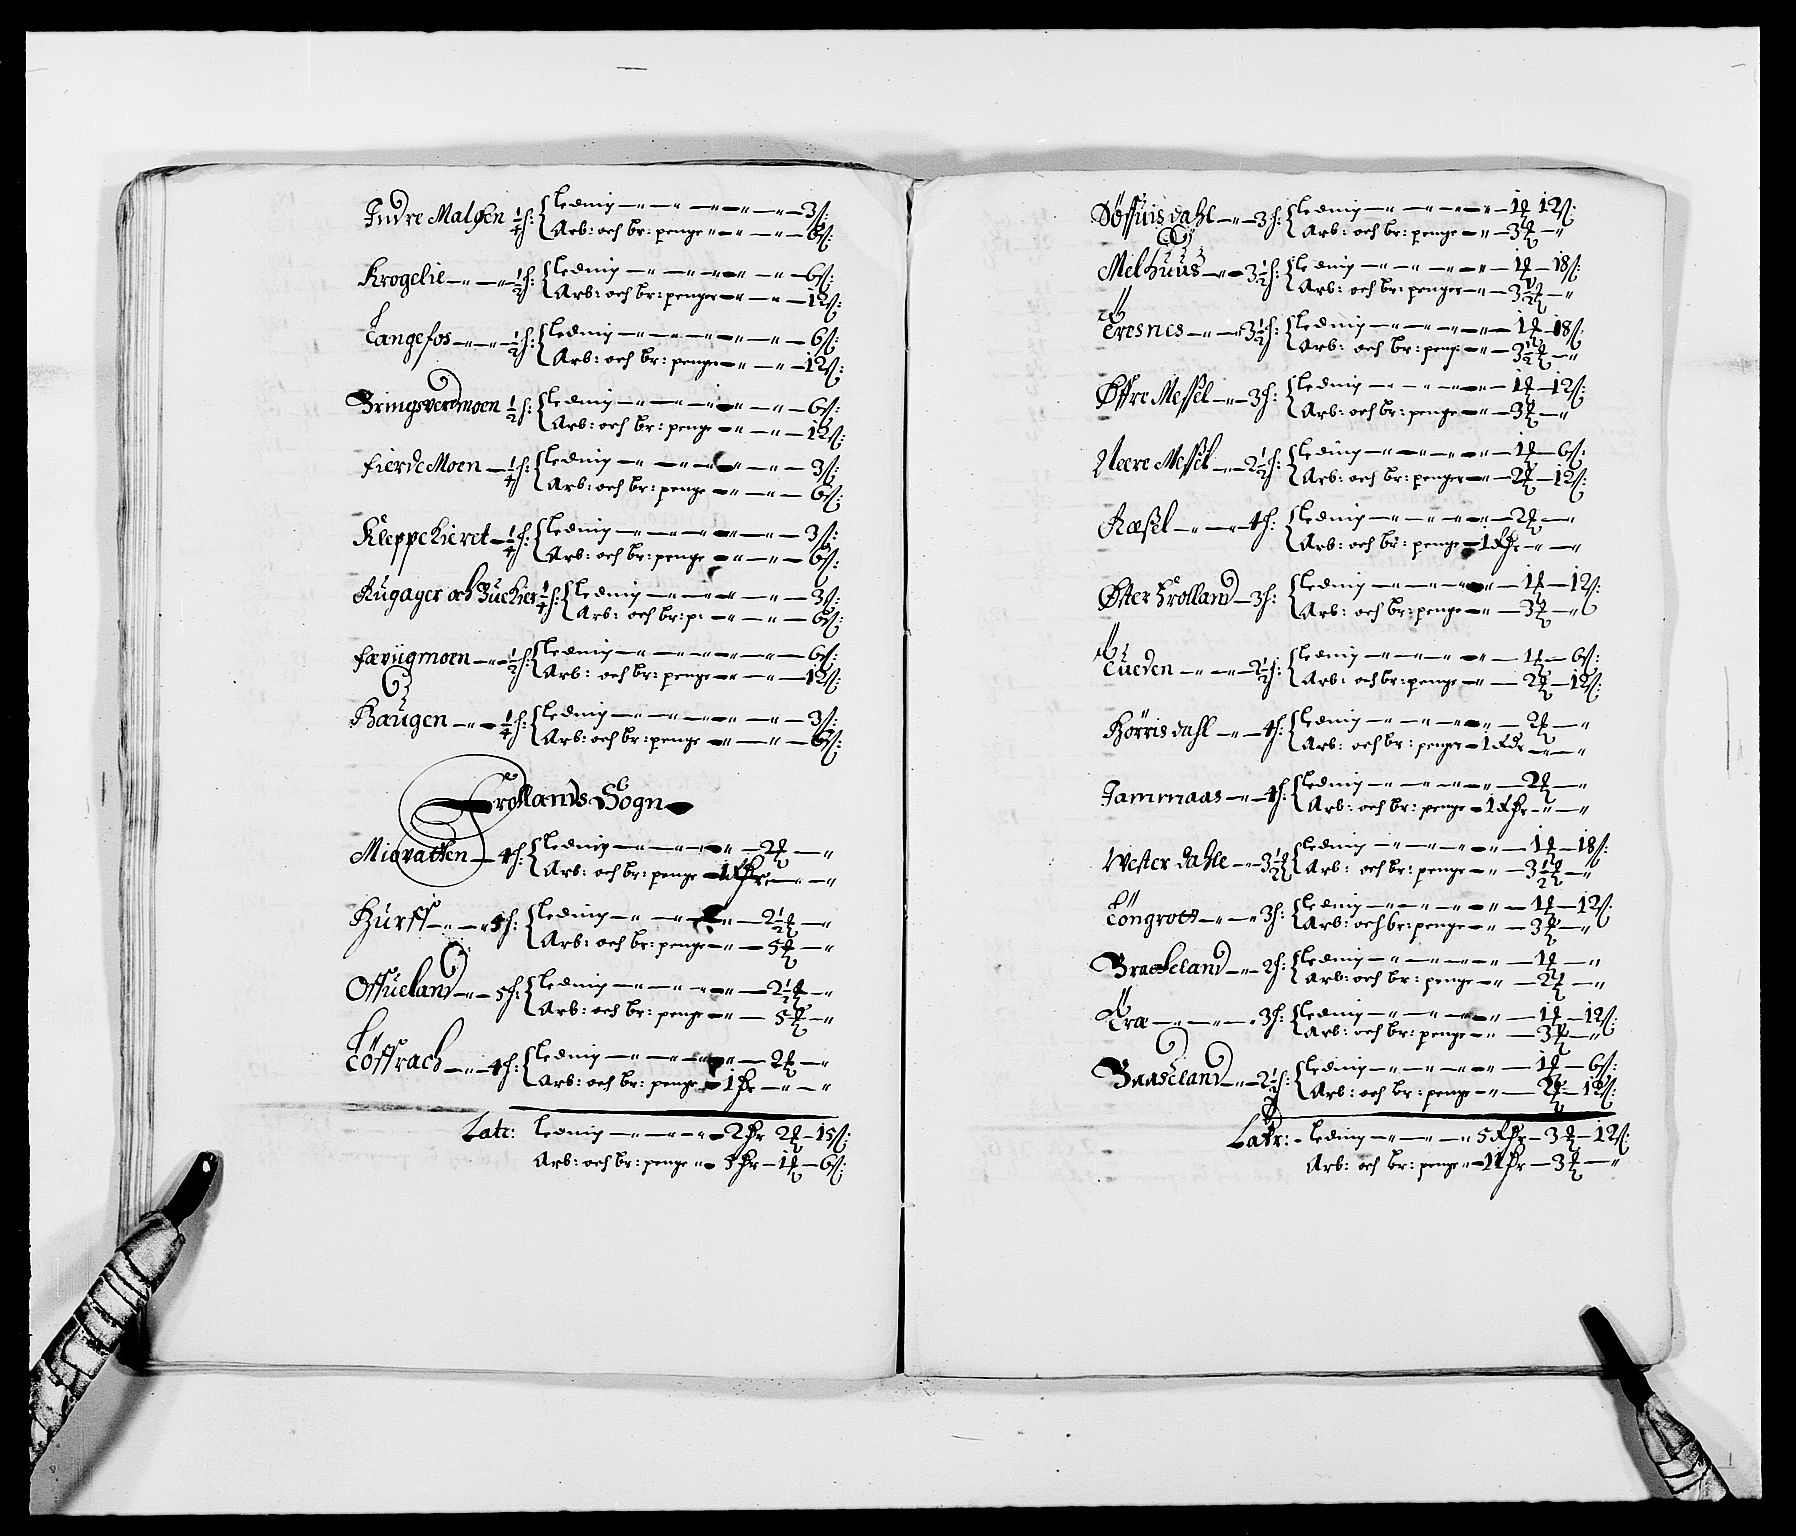 Indre Malsen 1/4 h: Leding — 3 s:
Arb: och br: penge — 6 s:
Krogelie — 1/2 h: Leding — 6 s:
Arb: och br: penge — 12 s:
Tangefos — 1/2 h: Leding — 6 s:
Arb: och br: penge — 12 s:
Bringsverdmoen 1/2 h: Leding — 6 s:
Arb: och br: penge — 12 s:
fierde Moen — 1/4 h: Leding — 3 s:
Arb: och br: penge — 6 s:
Kleppekieret — 1/4 h: Leding — 3 s:
Arb: och br: penge — 6 s:
Rugager och 1/4 h: Leding — 3 s:
Arb: och br: p: — 6 s:
færiigmoen — 1/2 h: Leding — 6 s:
Arb: och br: penge — 12 s:
Haugen — 1/4 h: Leding — 3 s:
Arb: och br: penge — 6 s:
Trollands Sogn
Miøvatten — 4 h: Leding — 2 —
Arb: och br: penge — 1 —
Hurff — 5 h: Leding — 2 1/2 —
Arb: och br: penge — 5 —
Offueland — 5 h: Leding — 2 1/2 —
Arb: och br: penge — 5 —
Løffrach — 4 h: Leding — 2 —
Arb: och br: penge — 1 —
Latr: Leding — 2 2 — 15 s:
Arb: och br: penge — 5 — 1 — 6 s:
Søffuisdahl — 3 h: Leding — 1 12 s:
Arb: och br: penge — 3 —
Melhuus — 3 1/2 h: Leding — 1 — 18 s:
Arb: och br: penge — 3 1/2 —
Tresnes — 3 1/2 h: Leding — 1 — 18 s:
Arb: och br: peng: — 3 1/2 —
Øffre Messel — 3 h: Leding — 1 — 12 s:
Arb: och br: penge — 3 —
Neere Messel — 2 1/2 h: Leding — 1 — 6 s:
Arb: och br: penge — 2 — 12 s:
Ræsel — 4 h: Leding — 2 —
Arb: och br: penge — 1 —
Øster Trolland — 3 h: Leding — 1 — 12 s:
Arb: och br: penge — 3 —
Tueden — 2 1/2 h: Leding — 1 — 6 s:
Arb: och br: penge — 2 — 12 s:
Hørrisdahl — 4 h: Leding — 2 —
Arb: och br: penge — 1 —
Jammaas — 4 h: Leding — 2 —
Arb: och br: penge — 1 —
Wester dahle — 3 1/2 Leding — 1 — 18 s:
Arb: och br: penge — 3 1/2 —
— 3 h: Leding — 1 — 12 s:
Arb: och br: penge — 3 —
Brækeland — 2 h: Leding — 1 —
Arb: och br: penge — 2 —
Træ — 3 h: Leding — 1 — 12 s:
Arb: och br: penge — 3 —
Baaseland — 2 1/2 h: Leding — 1 — 6 s:
Arb: och br: penge — 2 — 12 s:
Latr: Leding — 5 — 3 — 12 s:
Arb: och br: penge — 11 — 3 —